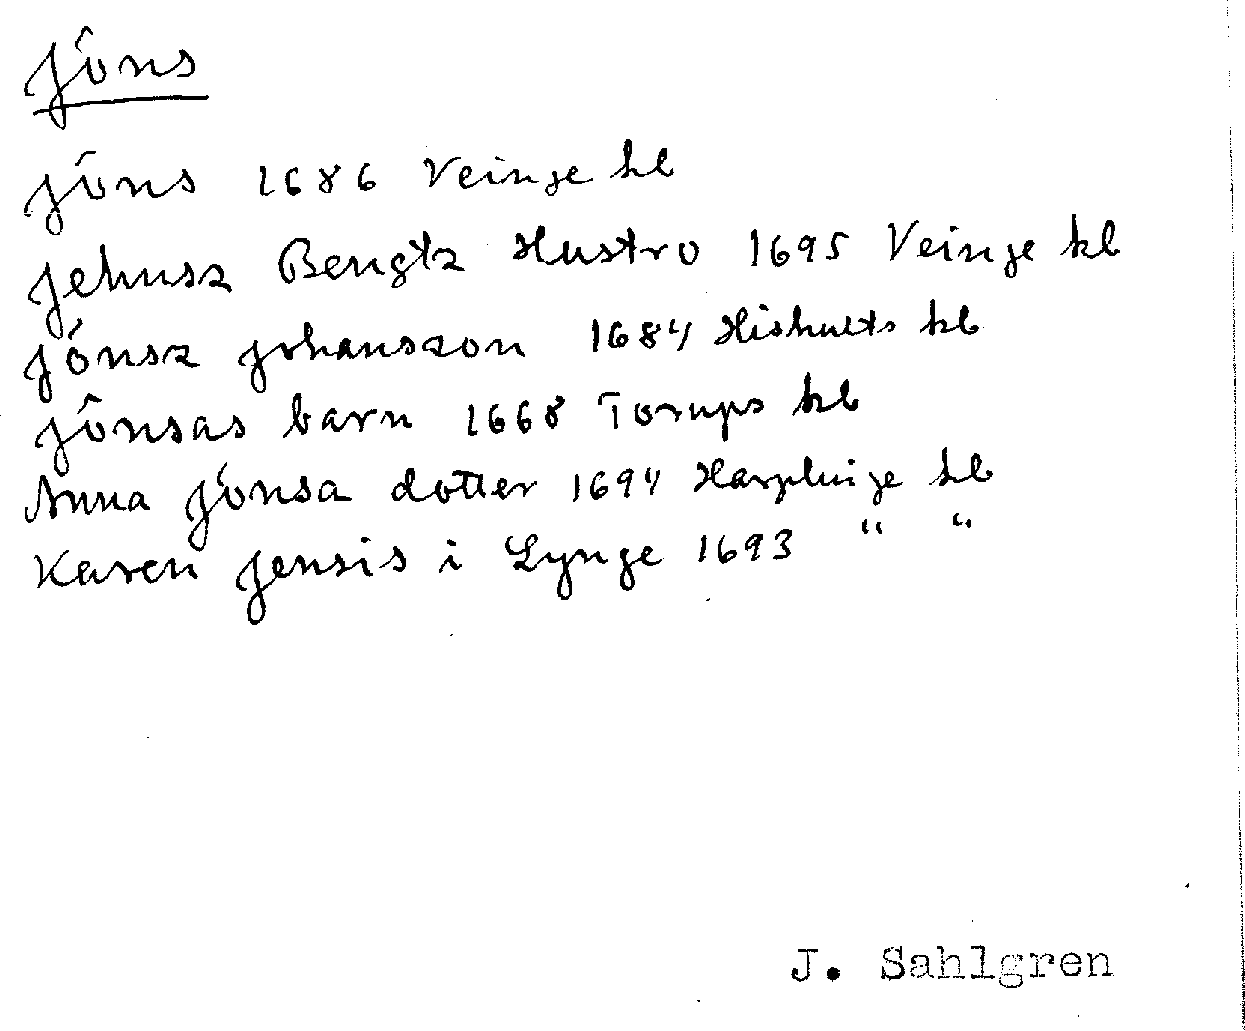 Jöns
Jöns 1686 Veinge kb
Jehnsz Bengtz Hustro 1695 Veinge kb
Jönsz Johanszon 1684 Hishults kb
Jönsas barn 1668 Torups kb
Anna Jönsa dotter 1694 Harplinge kb
Karen Jensis i Lynge 1693 " "
J. Sahlgren